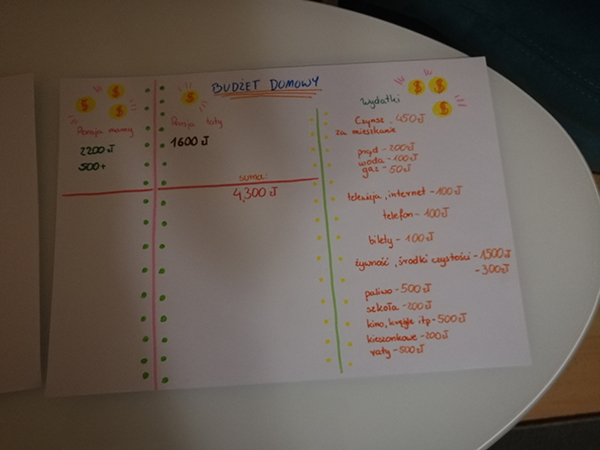 BUDŻET DOMOWY
Pensja mamy
2200 J
500+
Pensja taty
1600 J
suma:
4,300 J
Wydatki
Czynsz - 450 J
za mieszkanie
prąd - 200 J
woda - 100 J
gaz - 50 J
telewizja, internet - 100 J
telefon - 100 J
bilety - 100 J
żywność, środki czystości - 1500 J
- 300 J
paliwo - 500 J
szkoła - 200 J
kino, kręgle itp - 500 J
kieszonkowe - 200 J
raty - 500 J